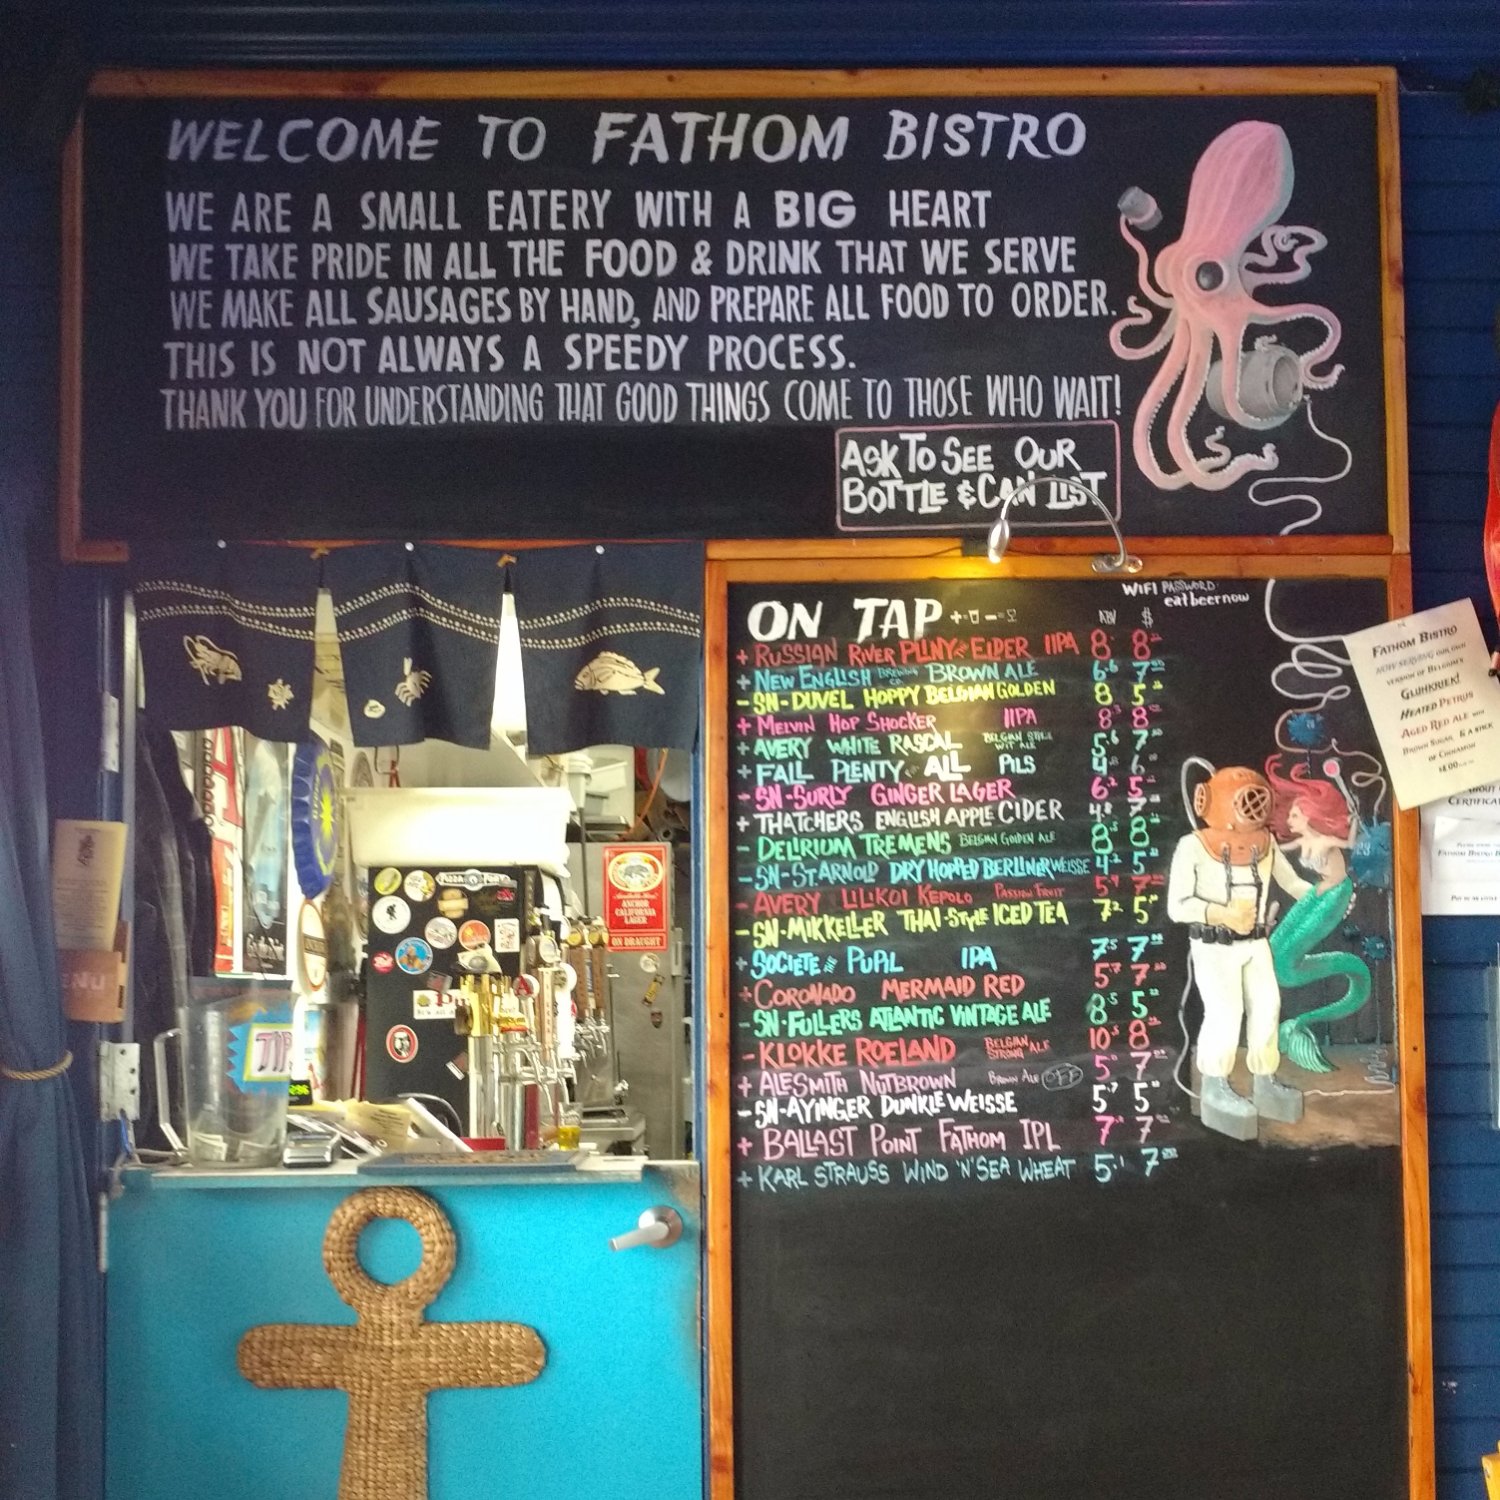 WELCOME TO FATHOM BISTRO
WE ARE A SMALL EATERY WITH A BIG HEART
WE TAKE PRIDE IN ALL THE FOOD & DRINK THAT WE SERVE
WE MAKE ALL SAUSAGES BY HAND, AND PREPARE ALL FOOD TO ORDER.
THIS IS NOT ALWAYS A SPEEDY PROCESS.
THANK YOU FOR UNDERSTANDING THAT GOOD THINGS COME TO THOSE WHO WAIT!
ASK TO SEE OUR
BOTTLE & CAN LIST
WIFI PASSWORD:
eatbeernow
ON TAP ABV $
+ RUSSIAN RIVER PLINY THE ELDER IIPA 8 8
+ NEW ENGLISH BREWING CO. BROWN ALE 6.6 7
- SN-DUVEL HOPPY BELGIAN GOLDEN 8 5
+ MELVIN HOP SHOCKER IIPA 8 8
+ AVERY WHITE RASCAL BELGIAN STYLE WIT ALE 5.6 7
+ FALL PLENTY FOR ALL PILS 4 6
- SN-SURLY GINGER LAGER 6.2 5
+ THATCHERS ENGLISH APPLE CIDER 4.8 7
- DELIRIUM TREMENS BELGIAN GOLDEN ALE 8.5 8
- SN-ST. ARNOLD DRY HOPPED BERLINER WEISSE 4.2 5
- AVERY LILIKOI KEPOLO PASSION FRUIT 5.4 7
- SN-MIKKELLER THAI-STYLE ICED TEA 7.2 5
+ SOCIETE THE PUPIL IPA 7.5 7
+ CORONADO MERMAID RED 5.7 7
- SN-FULLERS ATLANTIC VINTAGE ALE 8.5 5
- KLOKKE ROELAND BELGIAN STRONG ALE 10.5 8
+ ALESMITH NUTBROWN BROWN ALE OFF 5 7
- SN-AYINGER DUNKLE WEISSE 5.7 5
+ BALLAST POINT FATHOM IPL 7 7
+ KARL STRAUSS WIND 'N' SEA WHEAT 5.1 7
FATHOM BISTRO
NOW SERVING OUR OWN
VERSION OF BELGIUM'S
GLUHKRIEK!
HEATED PETRUS
AGED RED ALE WITH
BROWN SUGAR & A STICK
OF CINNAMON
$8.00
CERTIFICA
PIZZA PORT
ANCHOR
CALIFORNIA
LAGER
ON DRAUGHT
MENU
TIP